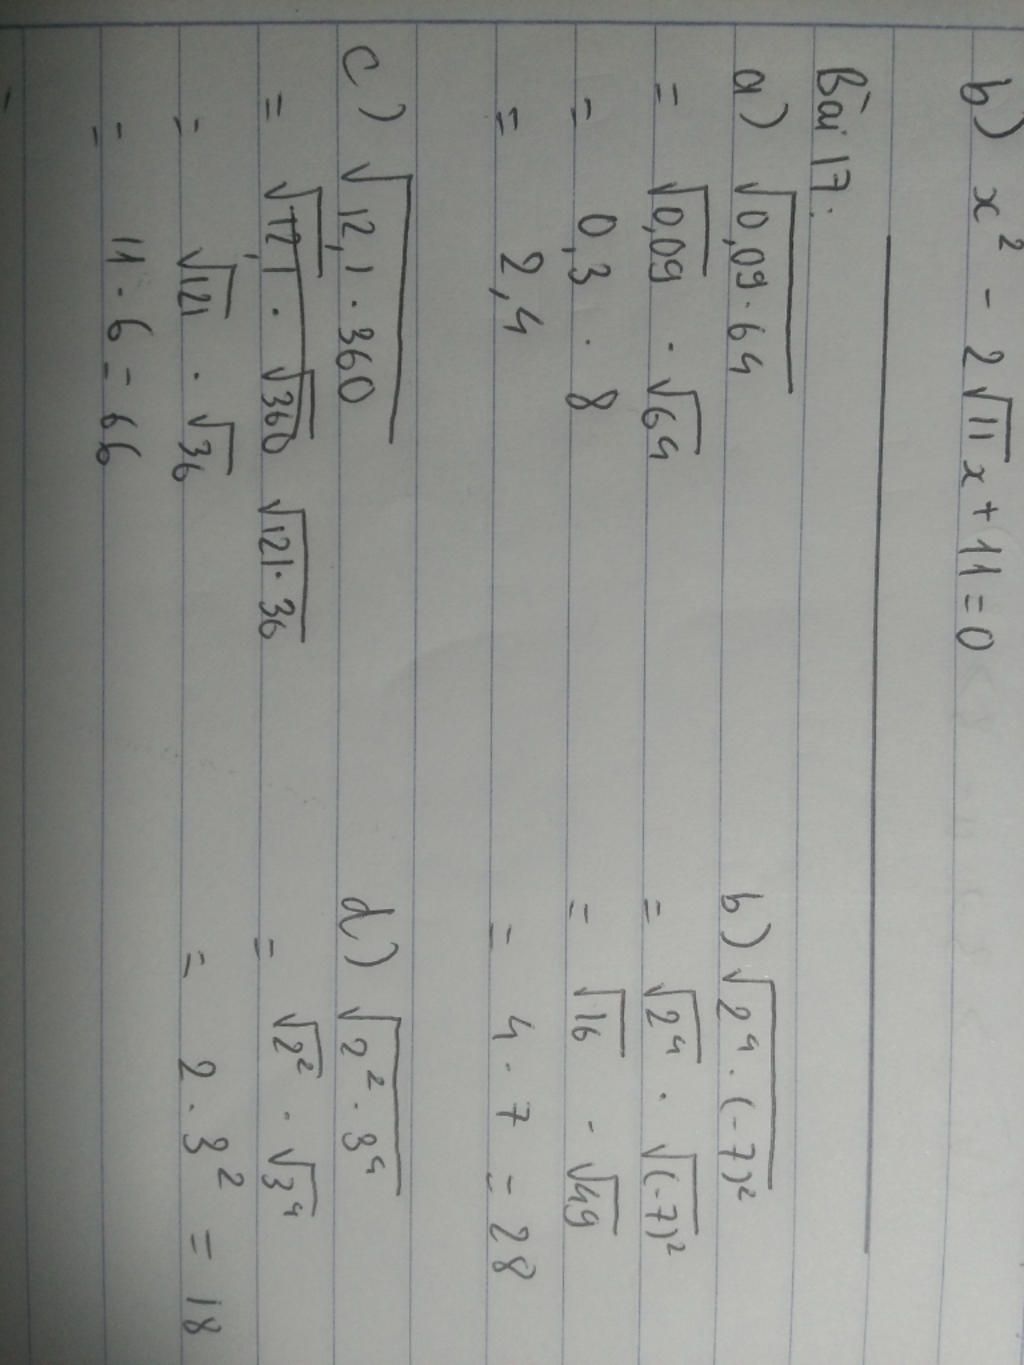 b) x² - 2√11x + 11 = 0
Bài 17:
a) √0,09·64
= √0,09 · √64
= 0,3 · 8
= 2,4
b) √2⁴·(-7)²
= √2⁴ · √(-7)²
= √16 · √49
= 4·7 = 28
c) √12,1·360
= √12,1 · √360 √121·36
= √121 · √36
= 11·6 = 66
d) √2²·3⁴
= √2² · √3⁴
= 2·3² = 18